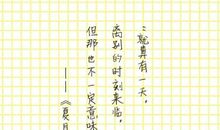 ：就算有一天，
离别的时刻来临，
但那也不一定意味
——《夏月